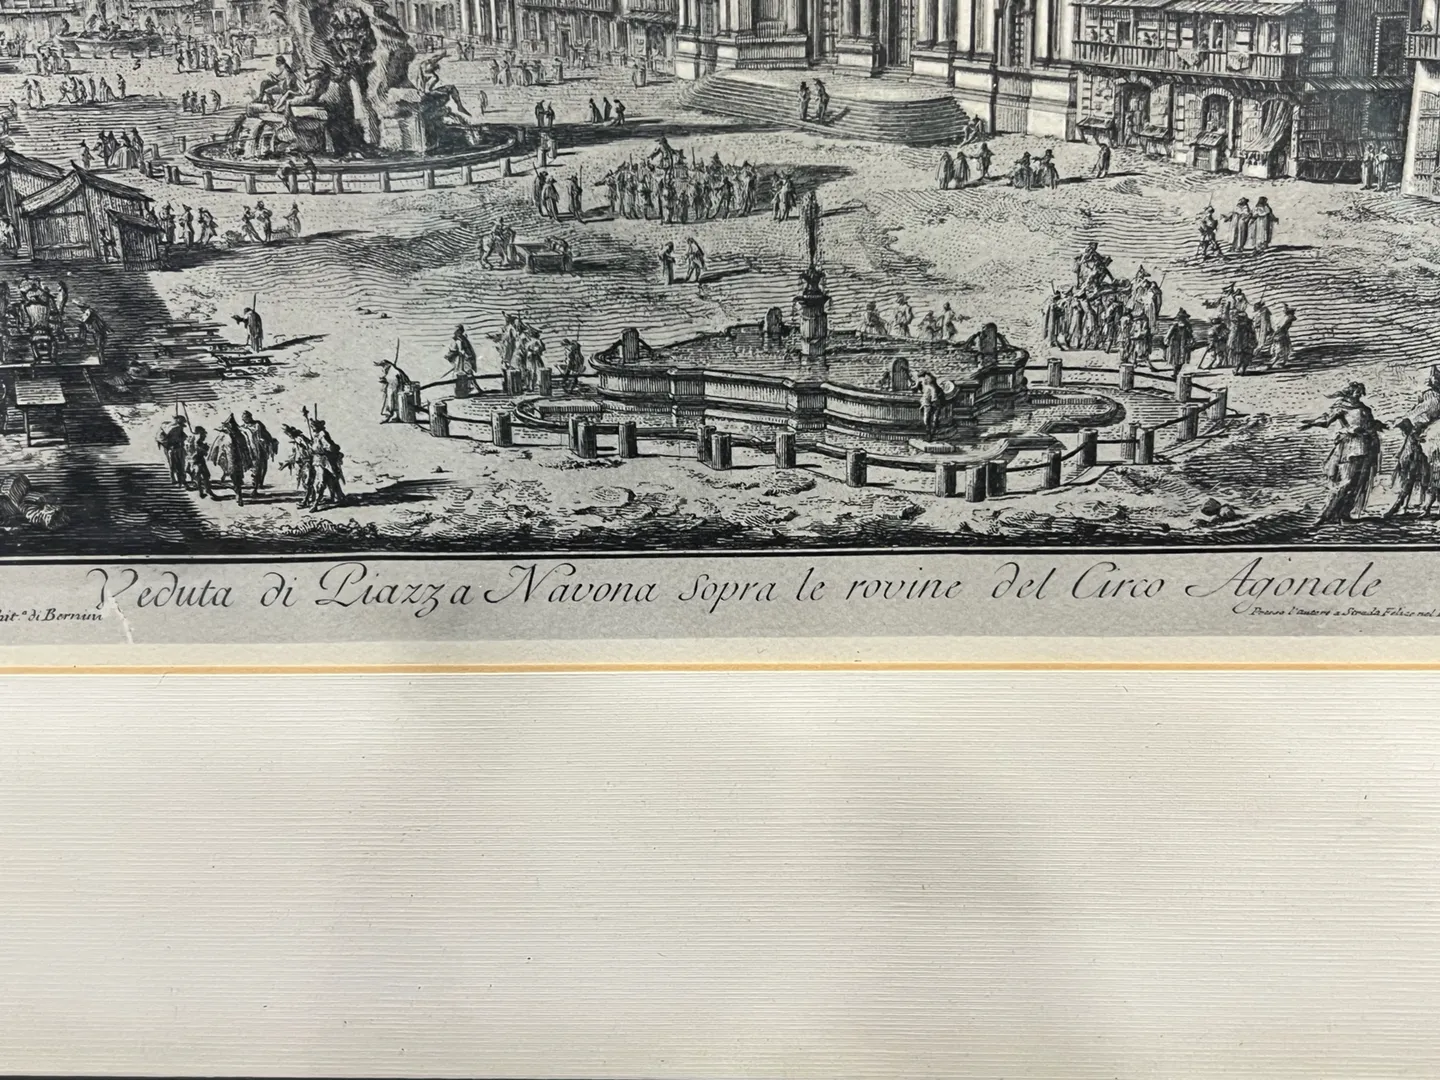 Veduta di Piazza Navona sopra le rovine del Circo Agonale
hit.ª di Bernini
Presso l'autore a Strada Felice nel